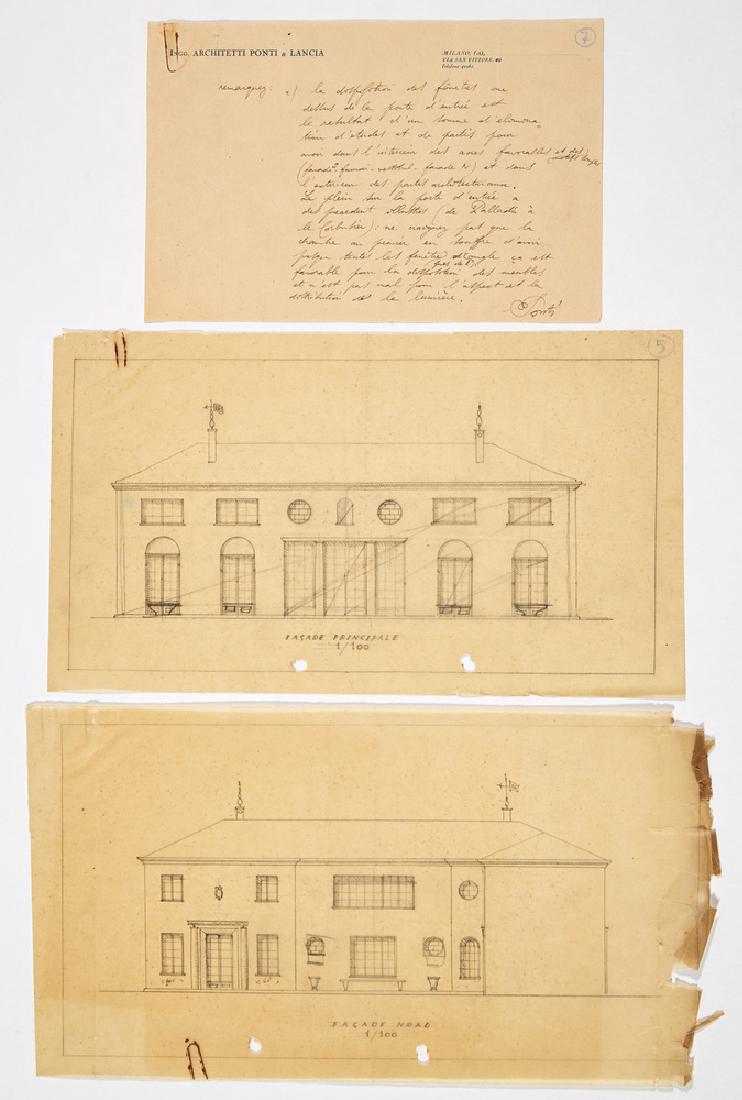 INGG. ARCHITETTI PONTI & LANCIA
MILANO, (111),
VIA SAN VITTORE, 40
7
remarquez: a) la disposition des fenêtres au
dessus de la porte d'entrée est
le resultat d'un somme d'
d'etudes et de partis pour
avoir dans l'interieur des axes favorables et des
façade N) et dans
l'exterieur des partis architecturaux.
Le plein sur la porte d'entrée a
des precedent illustres (de Palladio à
le Corbusier): ne craignez pas que la
chambre au premier en souffre d'avoir
presque toutes les fenêtres d'angle ça est
favorable pour la disposition des meubles
et n'est pas mal pour l'aspect et la
distribution de la lumière.
Ponti
5
FAÇADE PRINCIPALE
1/100
FAÇADE NORD
1/100